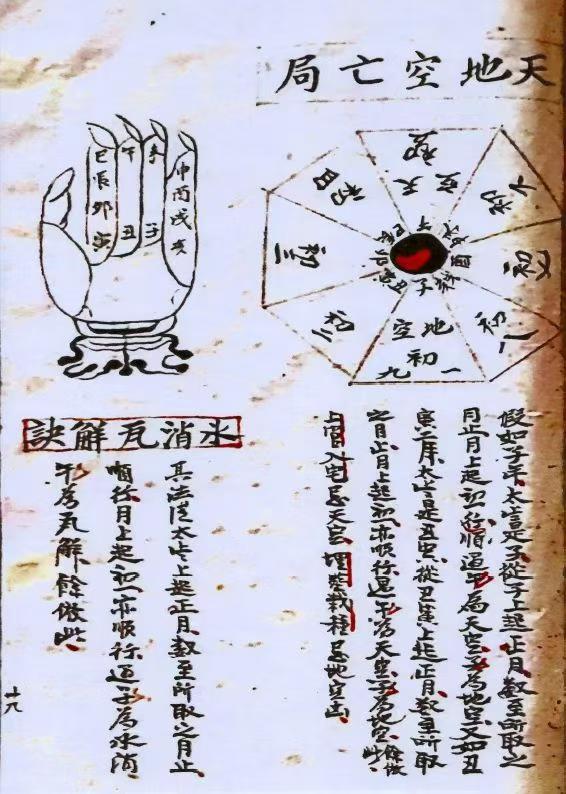 天地空亡局
巳
辰
卯
寅
午
丑
未
子
申
酉
戌
亥
初
天空
初四
初三
初二
地空
初一
九
初一
初
假如子年太歲是子從子上起正月數至所取之
月止月上起初一行順遇午為天空子為地空又如丑
寅二年太歲是丑寅從丑寅上起正月數至所取
之月止月上起初一亦順行遇午為天空子為地空餘倣此
上官入宅忌天空埋葬栽種忌地空亡
氷消瓦解訣
其法從太歲上起正月數至所取之月止
順行月上起初一亦順行遇子為氷消
午為瓦解餘倣此
十八